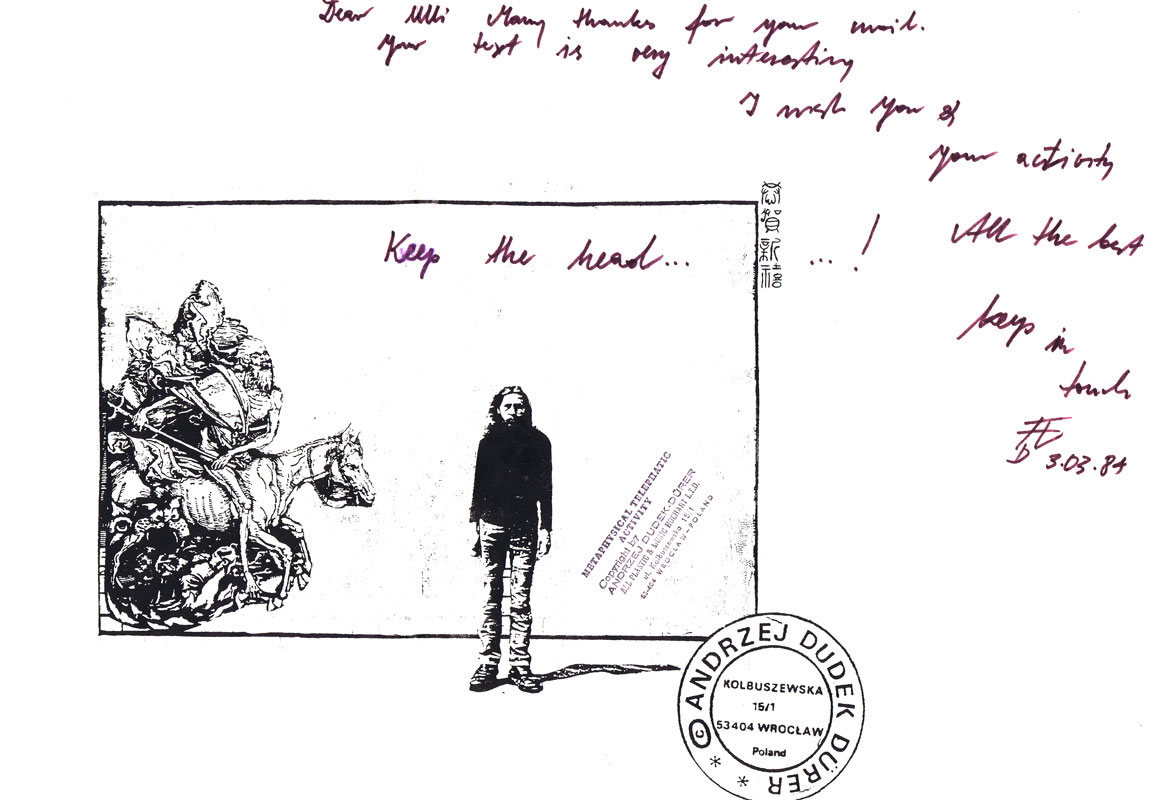 Dear Ulli Many thanks for your mail.
Your text is very interesting
I wish you &
your activity
恭賀新禧
Keep the head...
... !
All the best
keep in
touch
3.03.84
METAPHYSICAL TELEPATHIC
ACTIVITY
Copyright by
ANDRZEJ DUDEK-DÜRER
ALL PLASTIC & MUSIC
ul. Kolbuszewska 15/1
53-404 WROCŁAW-POLAND
© ANDRZEJ DUDEK DÜRER * *
KOLBUSZEWSKA
15/1
53404 WROCŁAW
Poland